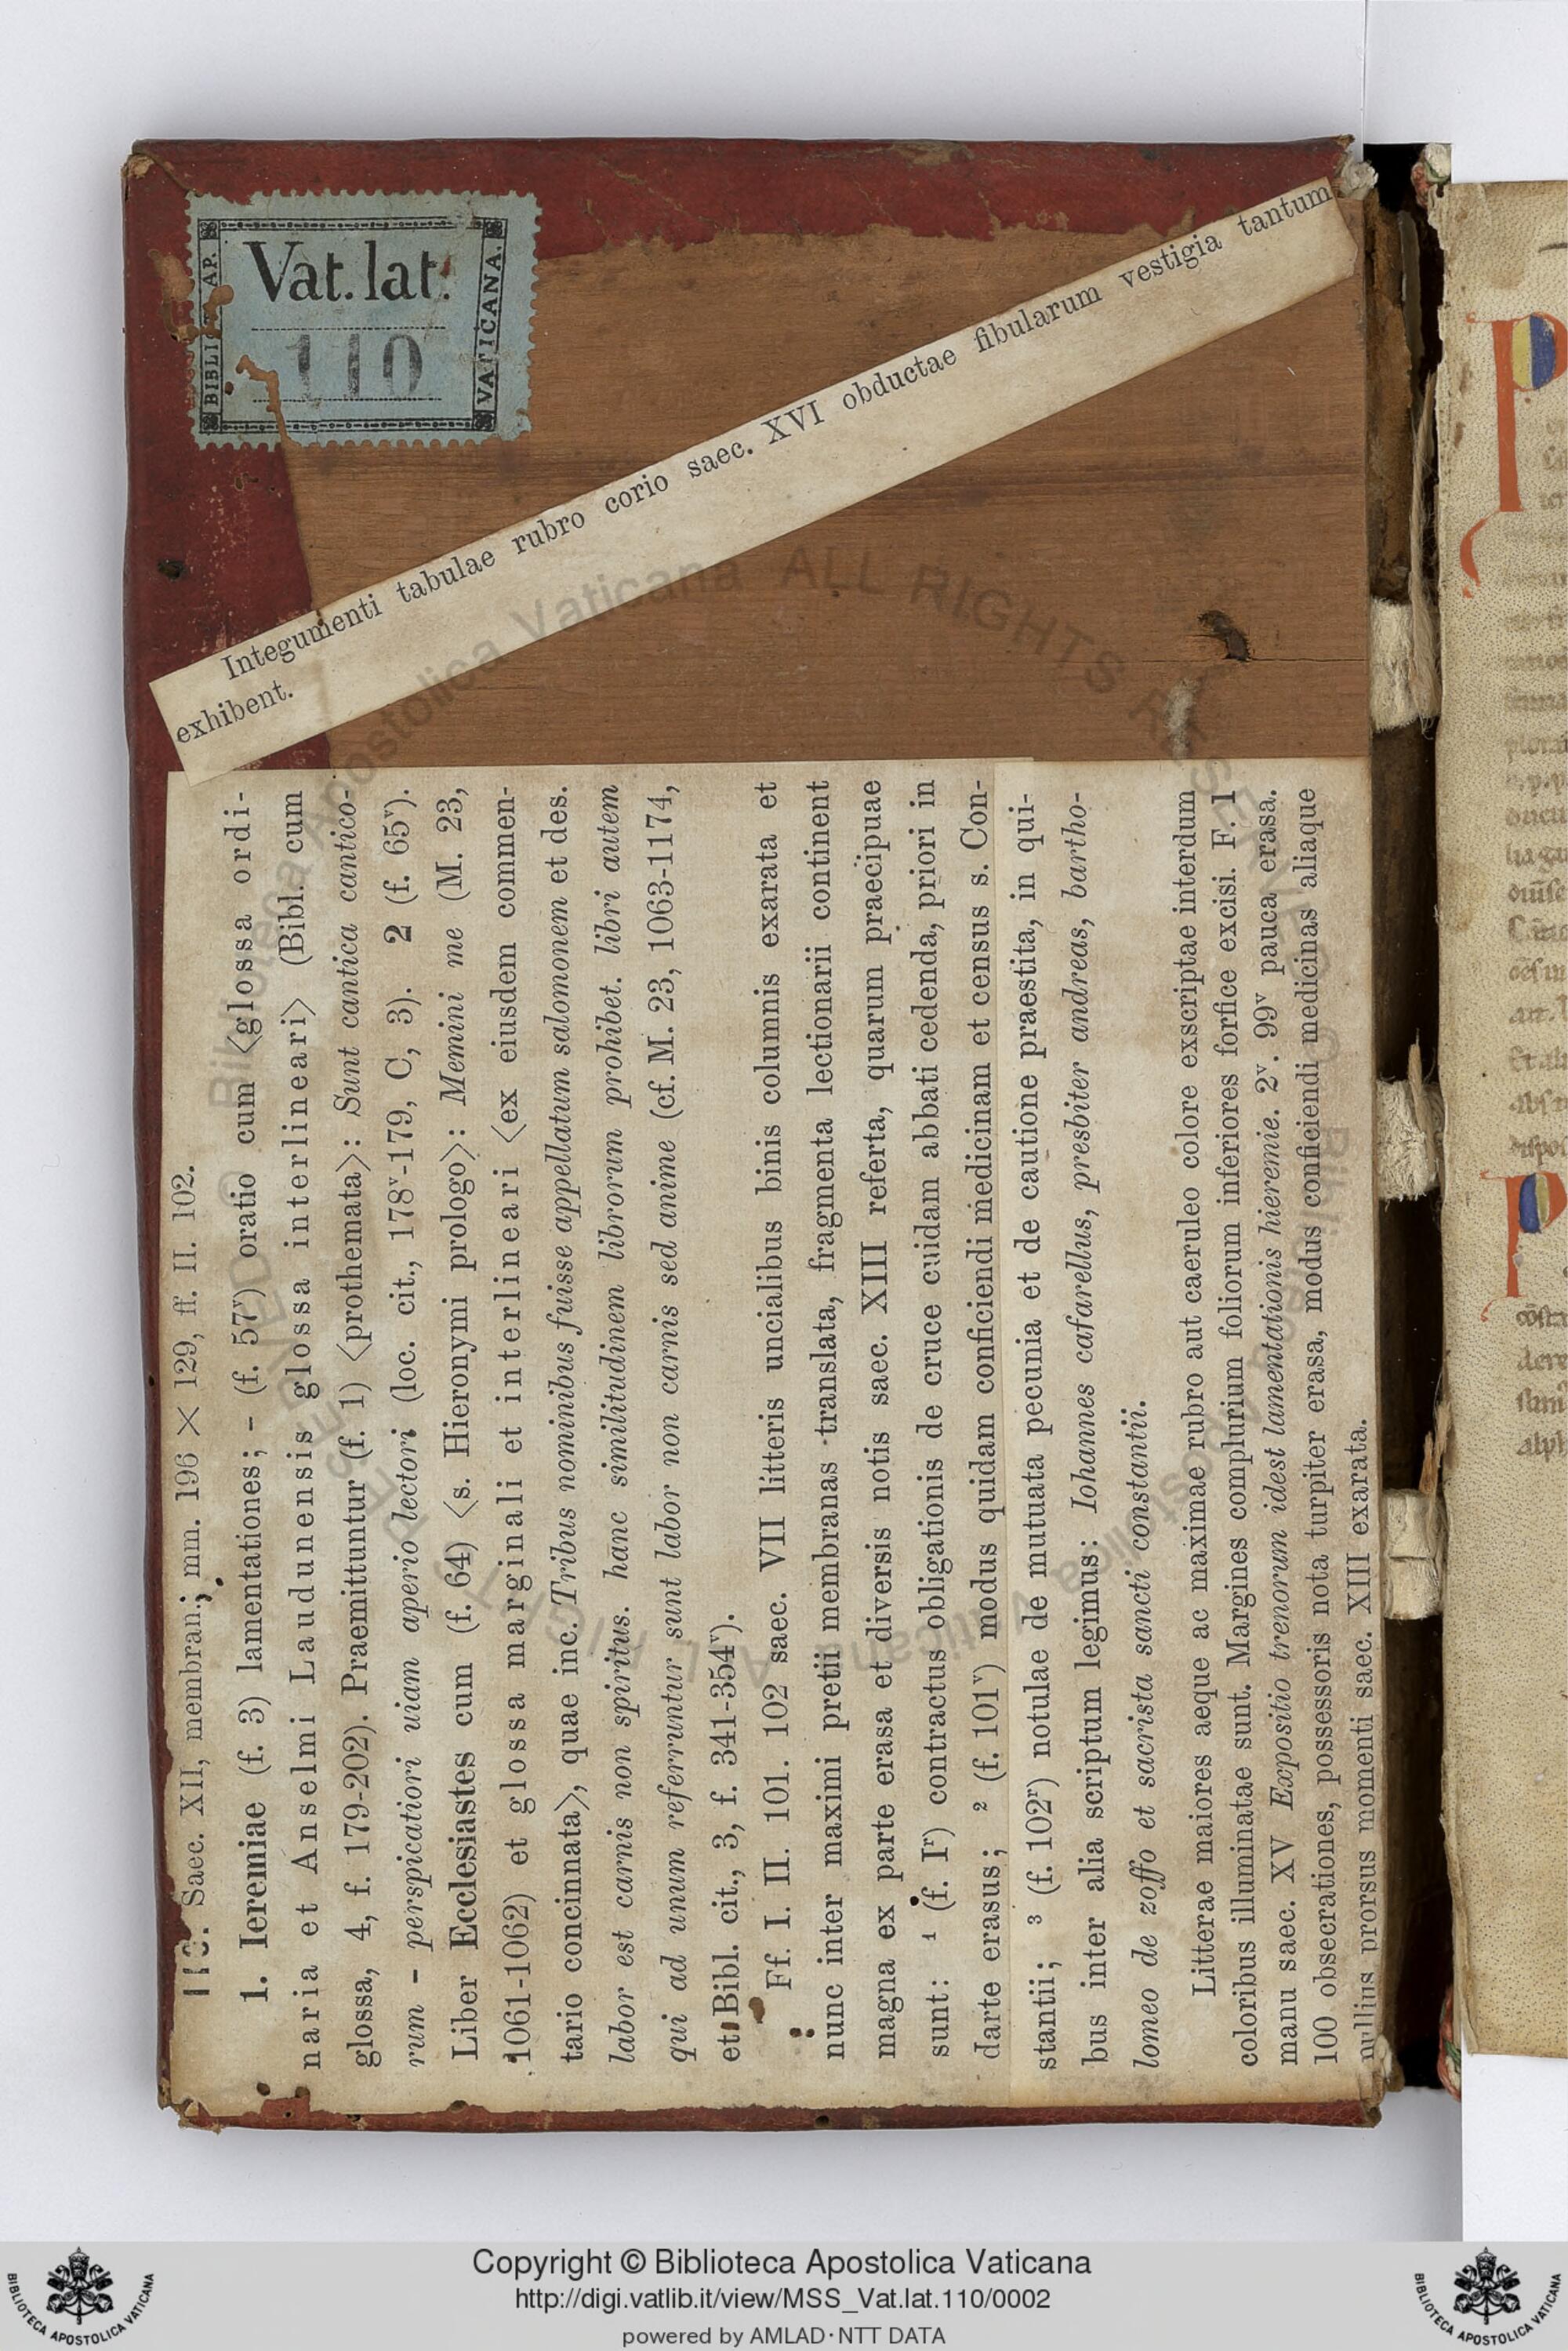 BIBLIOT. AP.
Vat. lat.
110
VATICANA.
Integumenti tabulae rubro corio saec. XVI obductae fibularum vestigia tantum
exhibent.
110. Saec. XII, membran; mm. 196 × 129, ff. II. 102.
1. Ieremiae (f. 3) lamentationes; – (f. 57ᵛ) oratio cum ⟨glossa ordi-
naria et Anselmi Laudunensis glossa interlineari⟩ (Bibl. cum
glossa, 4, f. 179-202). Praemittuntur (f. 1) ⟨prothemata⟩: Sunt cantica cantico-
rum – perspicatiori uiam aperio lectori (loc. cit., 178ᵛ-179, C, 3). 2 (f. 65ᵛ).
Liber Ecclesiastes cum (f. 64) ⟨s. Hieronymi prologo⟩: Memini me (M. 23,
1061-1062) et glossa marginali et interlineari ⟨ex eiusdem commen-
tario concinnata⟩, quae inc. Tribus nominibus fuisse appellatum salomonem et des.
labor est carnis non spiritus. hanc similitudinem librorum prohibet. libri autem
qui ad unum referruntur sunt labor non carnis sed anime (cf. M. 23, 1063-1174,
et Bibl. cit., 3, f. 341-354ᵛ).
Ff. I. II. 101. 102 saec. VII litteris uncialibus binis columnis exarata et
nunc inter maximi pretii membranas translata, fragmenta lectionarii continent
magna ex parte erasa et diversis notis saec. XIII referta, quarum praecipuae
sunt: ¹ (f. Iʳ) contractus obligationis de cruce cuidam abbati cedenda, priori in
darte erasus; ² (f. 101ᵛ) modus quidam conficiendi medicinam et census s. Con-
stantii; ³ (f. 102ʳ) notulae de mutuata pecunia et de cautione praestita, in qui-
bus inter alia scriptum legimus: Iohannes cafarellus, presbiter andreas, bartho-
lomeo de zoffo et sacrista sancti constantii.
Litterae maiores aeque ac maximae rubro aut caeruleo colore exscriptae interdum
coloribus illuminatae sunt. Margines complurium foliorum inferiores forfice excisi. F. 1
manu saec. XV Expositio trenorum idest lamentationis hieremie. 2ᵛ. 99ᵛ pauca erasa.
100 obsecrationes, possessoris nota turpiter erasa, modus conficiendi medicinas aliaque
nullius prorsus momenti saec. XIII exarata.
Copyright © Biblioteca Apostolica Vaticana
http://digi.vatlib.it/view/MSS_Vat.lat.110/0002
powered by AMLAD·NTT DATA
BIBLIOTECA APOSTOLICA VATICANA
BIBLIOTECA APOSTOLICA VATICANA